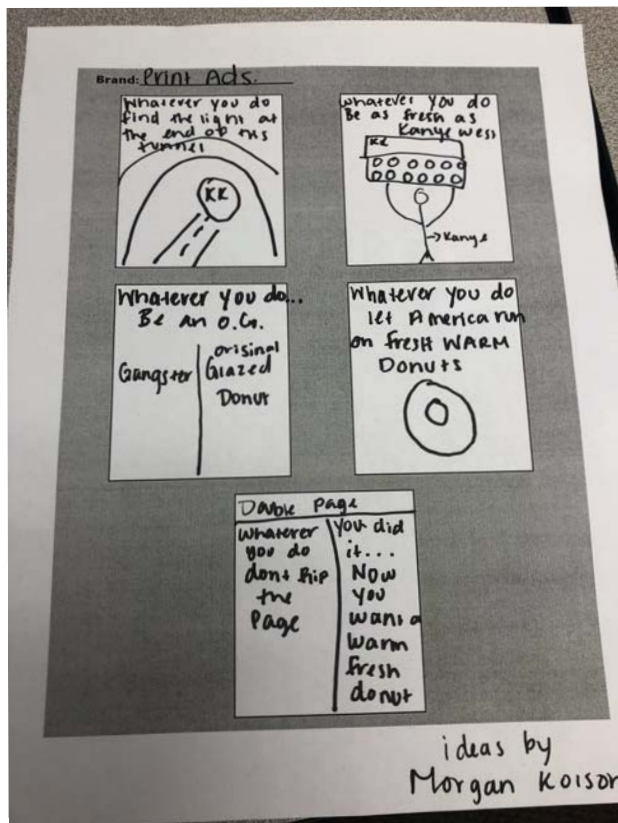 Brand: Print Ads.
Whatever you do
find the light at
the end of this
tunnel
KK
Whatever you do
Be as fresh as
Kanye West
KK
→Kanye
Whatever you do...
Be an O.G.
Gangster
original
Glazed
Donut
Whatever you do
let America run
on fresh WARM
Donuts
Double Page
Whatever
you do
dont flip
the
Page
You did
it...
Now
you
want a
warm
fresh
donut
ideas by
Morgan